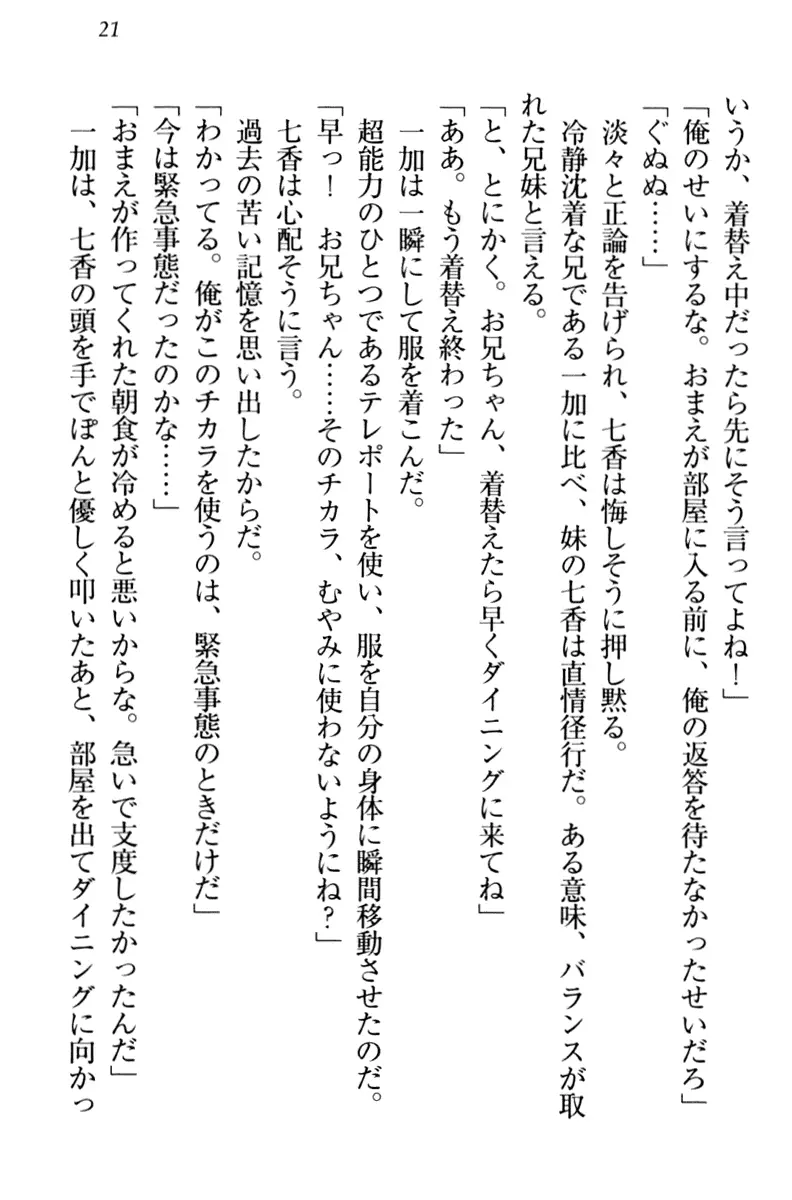 21
いうか、着替え中だったら先にそう言ってよね！」
「俺のせいにするな。おまえが部屋に入る前に、俺の返答を待たなかったせいだろ」
「ぐぬぬ……」
淡々と正論を告げられ、七香は悔しそうに押し黙る。
冷静沈着な兄である一加に比べ、妹の七香は直情径行だ。ある意味、バランスが取
れた兄妹と言える。
「と、とにかく。お兄ちゃん、着替えたら早くダイニングに来てね」
「ああ。もう着替え終わった」
一加は一瞬にして服を着こんだ。
超能力のひとつであるテレポートを使い、服を自分の身体に瞬間移動させたのだ。
「早っ！　お兄ちゃん……そのチカラ、むやみに使わないようにね？」
七香は心配そうに言う。
過去の苦い記憶を思い出したからだ。
「わかってる。俺がこのチカラを使うのは、緊急事態のときだけだ」
「今は緊急事態だったのかな……」
「おまえが作ってくれた朝食が冷めると悪いからな。急いで支度したかったんだ」
一加は、七香の頭を手でぽんと優しく叩いたあと、部屋を出てダイニングに向かっ